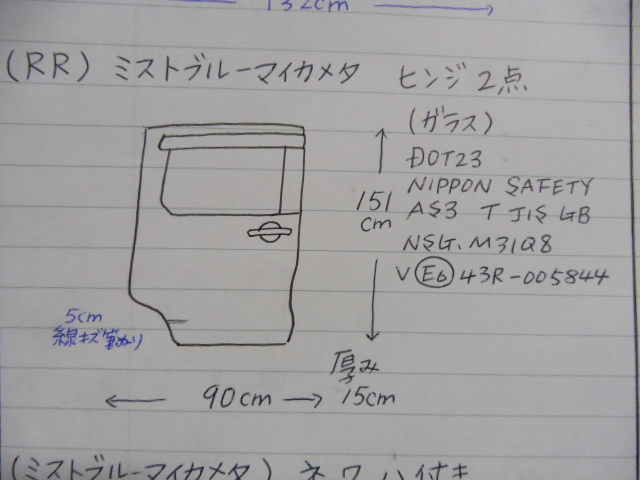 132cm
(RR) ミストブルーマイカメタ ヒンジ2点
(ガラス)
DOT23
NIPPON SAFETY
AS3 T JIS GB
NSG. M31Q8
V E6 43R-005844
151
cm
5cm
線キズ
厚み
15cm
90cm
(ミストブルーマイカメタ)